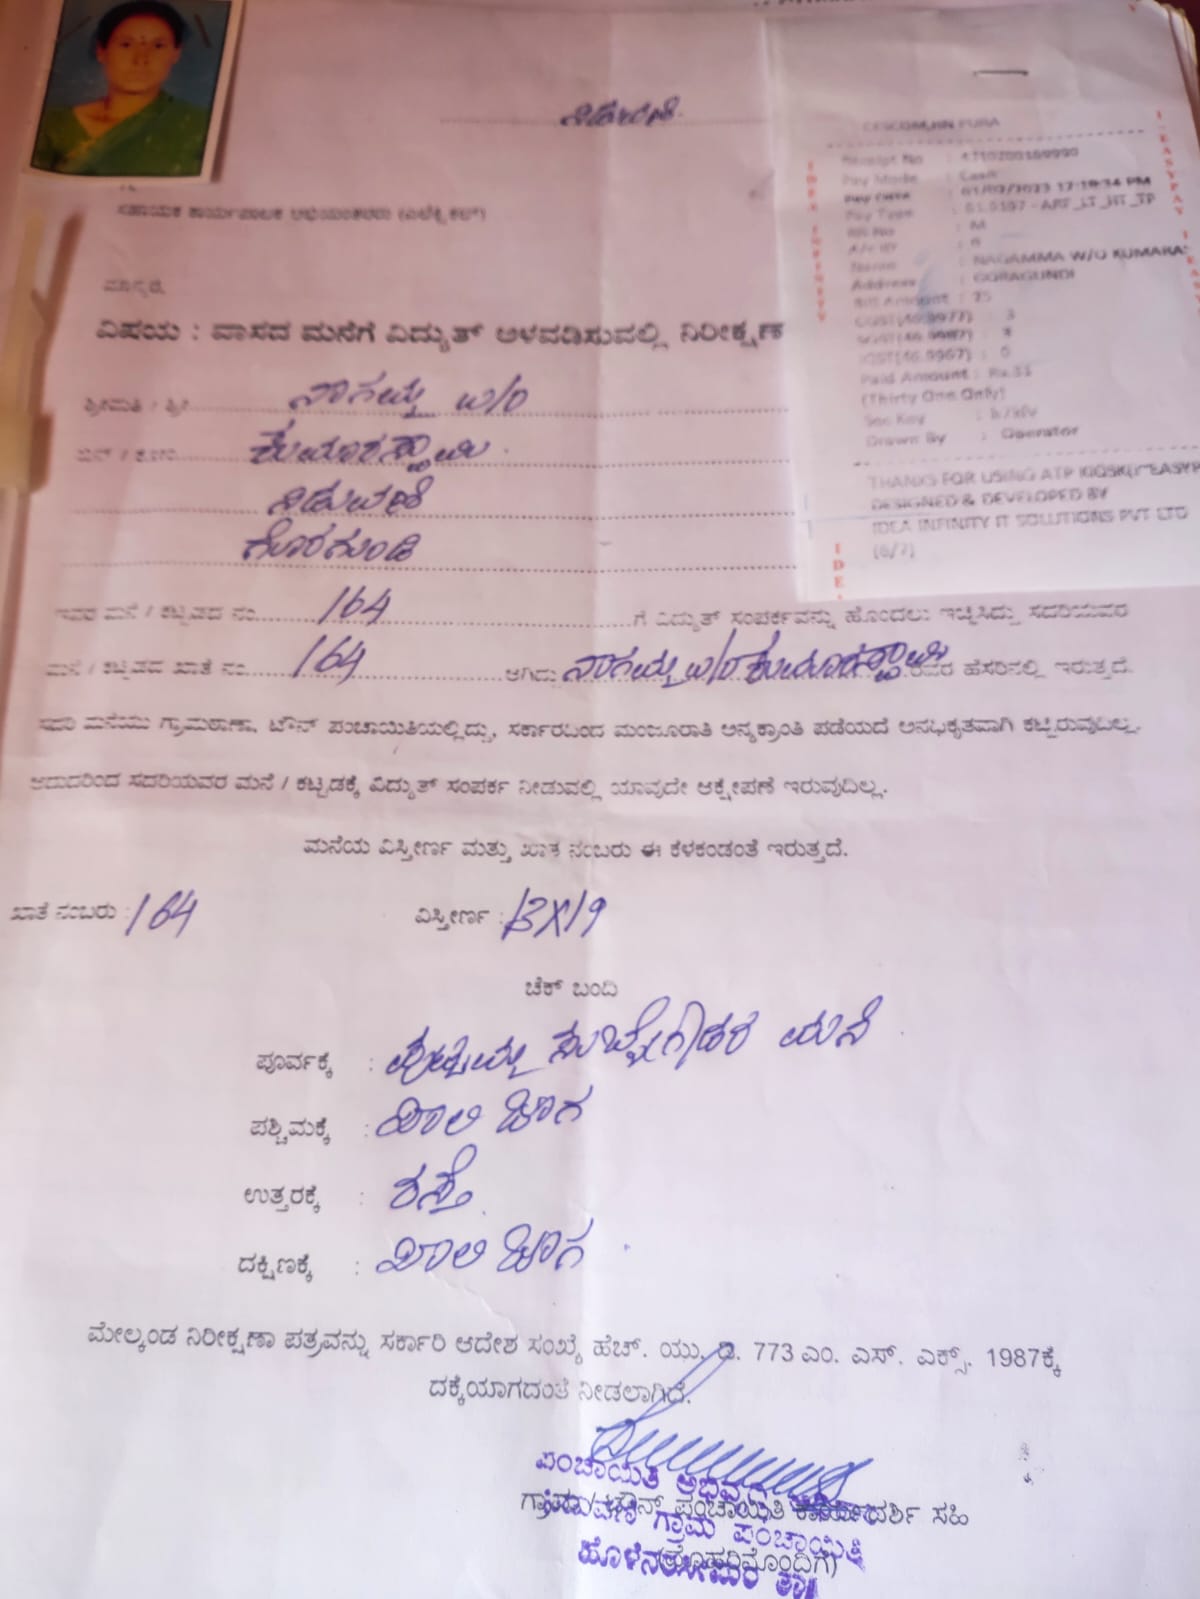 ನಿಡುವಣಿ
CESCOM,HN PURA
Receipt No : 4710200169990
Pay Mode : Cash
Pay Date : 01/02/2023 12:19:34 PM
Pay Type : 61.9107 - ARF_LT_HT_TP
RR No : M
A/c ID : 0
Name : NAGAMMA W/O KUMARA
Address : GORAGUNDI
Bill Amount : 25
CGST(46.9977) : 3
SGST(46.9987) : 3
IGST(46.9967) : 0
Paid Amount : Rs.31
(Thirty One Only)
Sec Key :
Drawn By : Operator
THANKS FOR USING ATP KIOSK("EASYP
DESIGNED & DEVELOPED BY
IDEA INFINITY IT SOLUTIONS PVT LTD
(6/7)
ಸಹಾಯಕ ಕಾರ್ಯಪಾಲಕ ಅಭಿಯಂತರರು (ಎಲೆಕ್ಟ್ರಿಕಲ್)
ಮಾನ್ಯರೆ,
ವಿಷಯ : ವಾಸದ ಮನೆಗೆ ವಿದ್ಯುತ್ ಅಳವಡಿಸುವಲ್ಲಿ ನಿರೀಕ್ಷಣ
ಶ್ರೀಮತಿ / ಶ್ರೀ ನಾಗಮ್ಮ w/o
ಬಿನ್ / ಕೋಂ ಕುಮಾರಸ್ವಾಮಿ
ನಿಡುವಣಿ
ಗೊರಗುಂಡಿ
ಇವರ ಮನೆ / ಕಟ್ಟಡದ ನಂ. 164 ಗೆ ವಿದ್ಯುತ್ ಸಂಪರ್ಕವನ್ನು ಹೊಂದಲು ಇಚ್ಛಿಸಿದ್ದು ಸದರಿಯವರ
ಮನೆ / ಕಟ್ಟಡದ ಖಾತೆ ನಂ. 164 ಆಗಿದ್ದು ನಾಗಮ್ಮ w/o ಕುಮಾರಸ್ವಾಮಿ ರವರ ಹೆಸರಿನಲ್ಲಿ ಇರುತ್ತದೆ.
ಸದರಿ ಮನೆಯು ಗ್ರಾಮಠಾಣಾ, ಟೌನ್ ಪಂಚಾಯಿತಿಯಲ್ಲಿದ್ದು, ಸರ್ಕಾರದಿಂದ ಮಂಜೂರಾತಿ ಅನ್ಯಕ್ರಾಂತಿ ಪಡೆಯದೆ ಅನಧಿಕೃತವಾಗಿ ಕಟ್ಟಿರುವುದಿಲ್ಲ.
ಆದುದರಿಂದ ಸದರಿಯವರ ಮನೆ / ಕಟ್ಟಡಕ್ಕೆ ವಿದ್ಯುತ್ ಸಂಪರ್ಕ ನೀಡುವಲ್ಲಿ ಯಾವುದೇ ಆಕ್ಷೇಪಣೆ ಇರುವುದಿಲ್ಲ.
ಮನೆಯ ವಿಸ್ತೀರ್ಣ ಮತ್ತು ಖಾತೆ ನಂಬರು ಈ ಕೆಳಕಂಡಂತೆ ಇರುತ್ತದೆ.
ಖಾತೆ ನಂಬರು : 164 ವಿಸ್ತೀರ್ಣ : 13X19
ಚೆಕ್ ಬಂದಿ
ಪೂರ್ವಕ್ಕೆ : ಪುಟ್ಟಮ್ಮ ಸುಬ್ಬೇಗೌಡರ ಮನೆ
ಪಶ್ಚಿಮಕ್ಕೆ : ಖಾಲಿ ಜಾಗ
ಉತ್ತರಕ್ಕೆ : ರಸ್ತೆ
ದಕ್ಷಿಣಕ್ಕೆ : ಖಾಲಿ ಜಾಗ
ಮೇಲ್ಕಂಡ ನಿರೀಕ್ಷಣಾ ಪತ್ರವನ್ನು ಸರ್ಕಾರಿ ಆದೇಶ ಸಂಖ್ಯೆ ಹೆಚ್. ಯು. ಡಿ. 773 ಎಂ. ಎಸ್. ಎಕ್ಸ್. 1987ಕ್ಕೆ
ದಕ್ಕೆಯಾಗದಂತೆ ನೀಡಲಾಗಿದೆ.
ಪಂಚಾಯಿತಿ ಅಭಿವೃದ್ಧಿ
ಗ್ರಾಮ / ಟೌನ್ ಪಂಚಾಯಿತಿ ಕಾರ್ಯದರ್ಶಿ ಸಹಿ
ನಿಡುವಣಿ ಗ್ರಾಮ ಪಂಚಾಯಿತಿ
(ಮೊಹರಿನೊಂದಿಗೆ)
ಹೊಳೆನರಸೀಪುರ ತಾ||